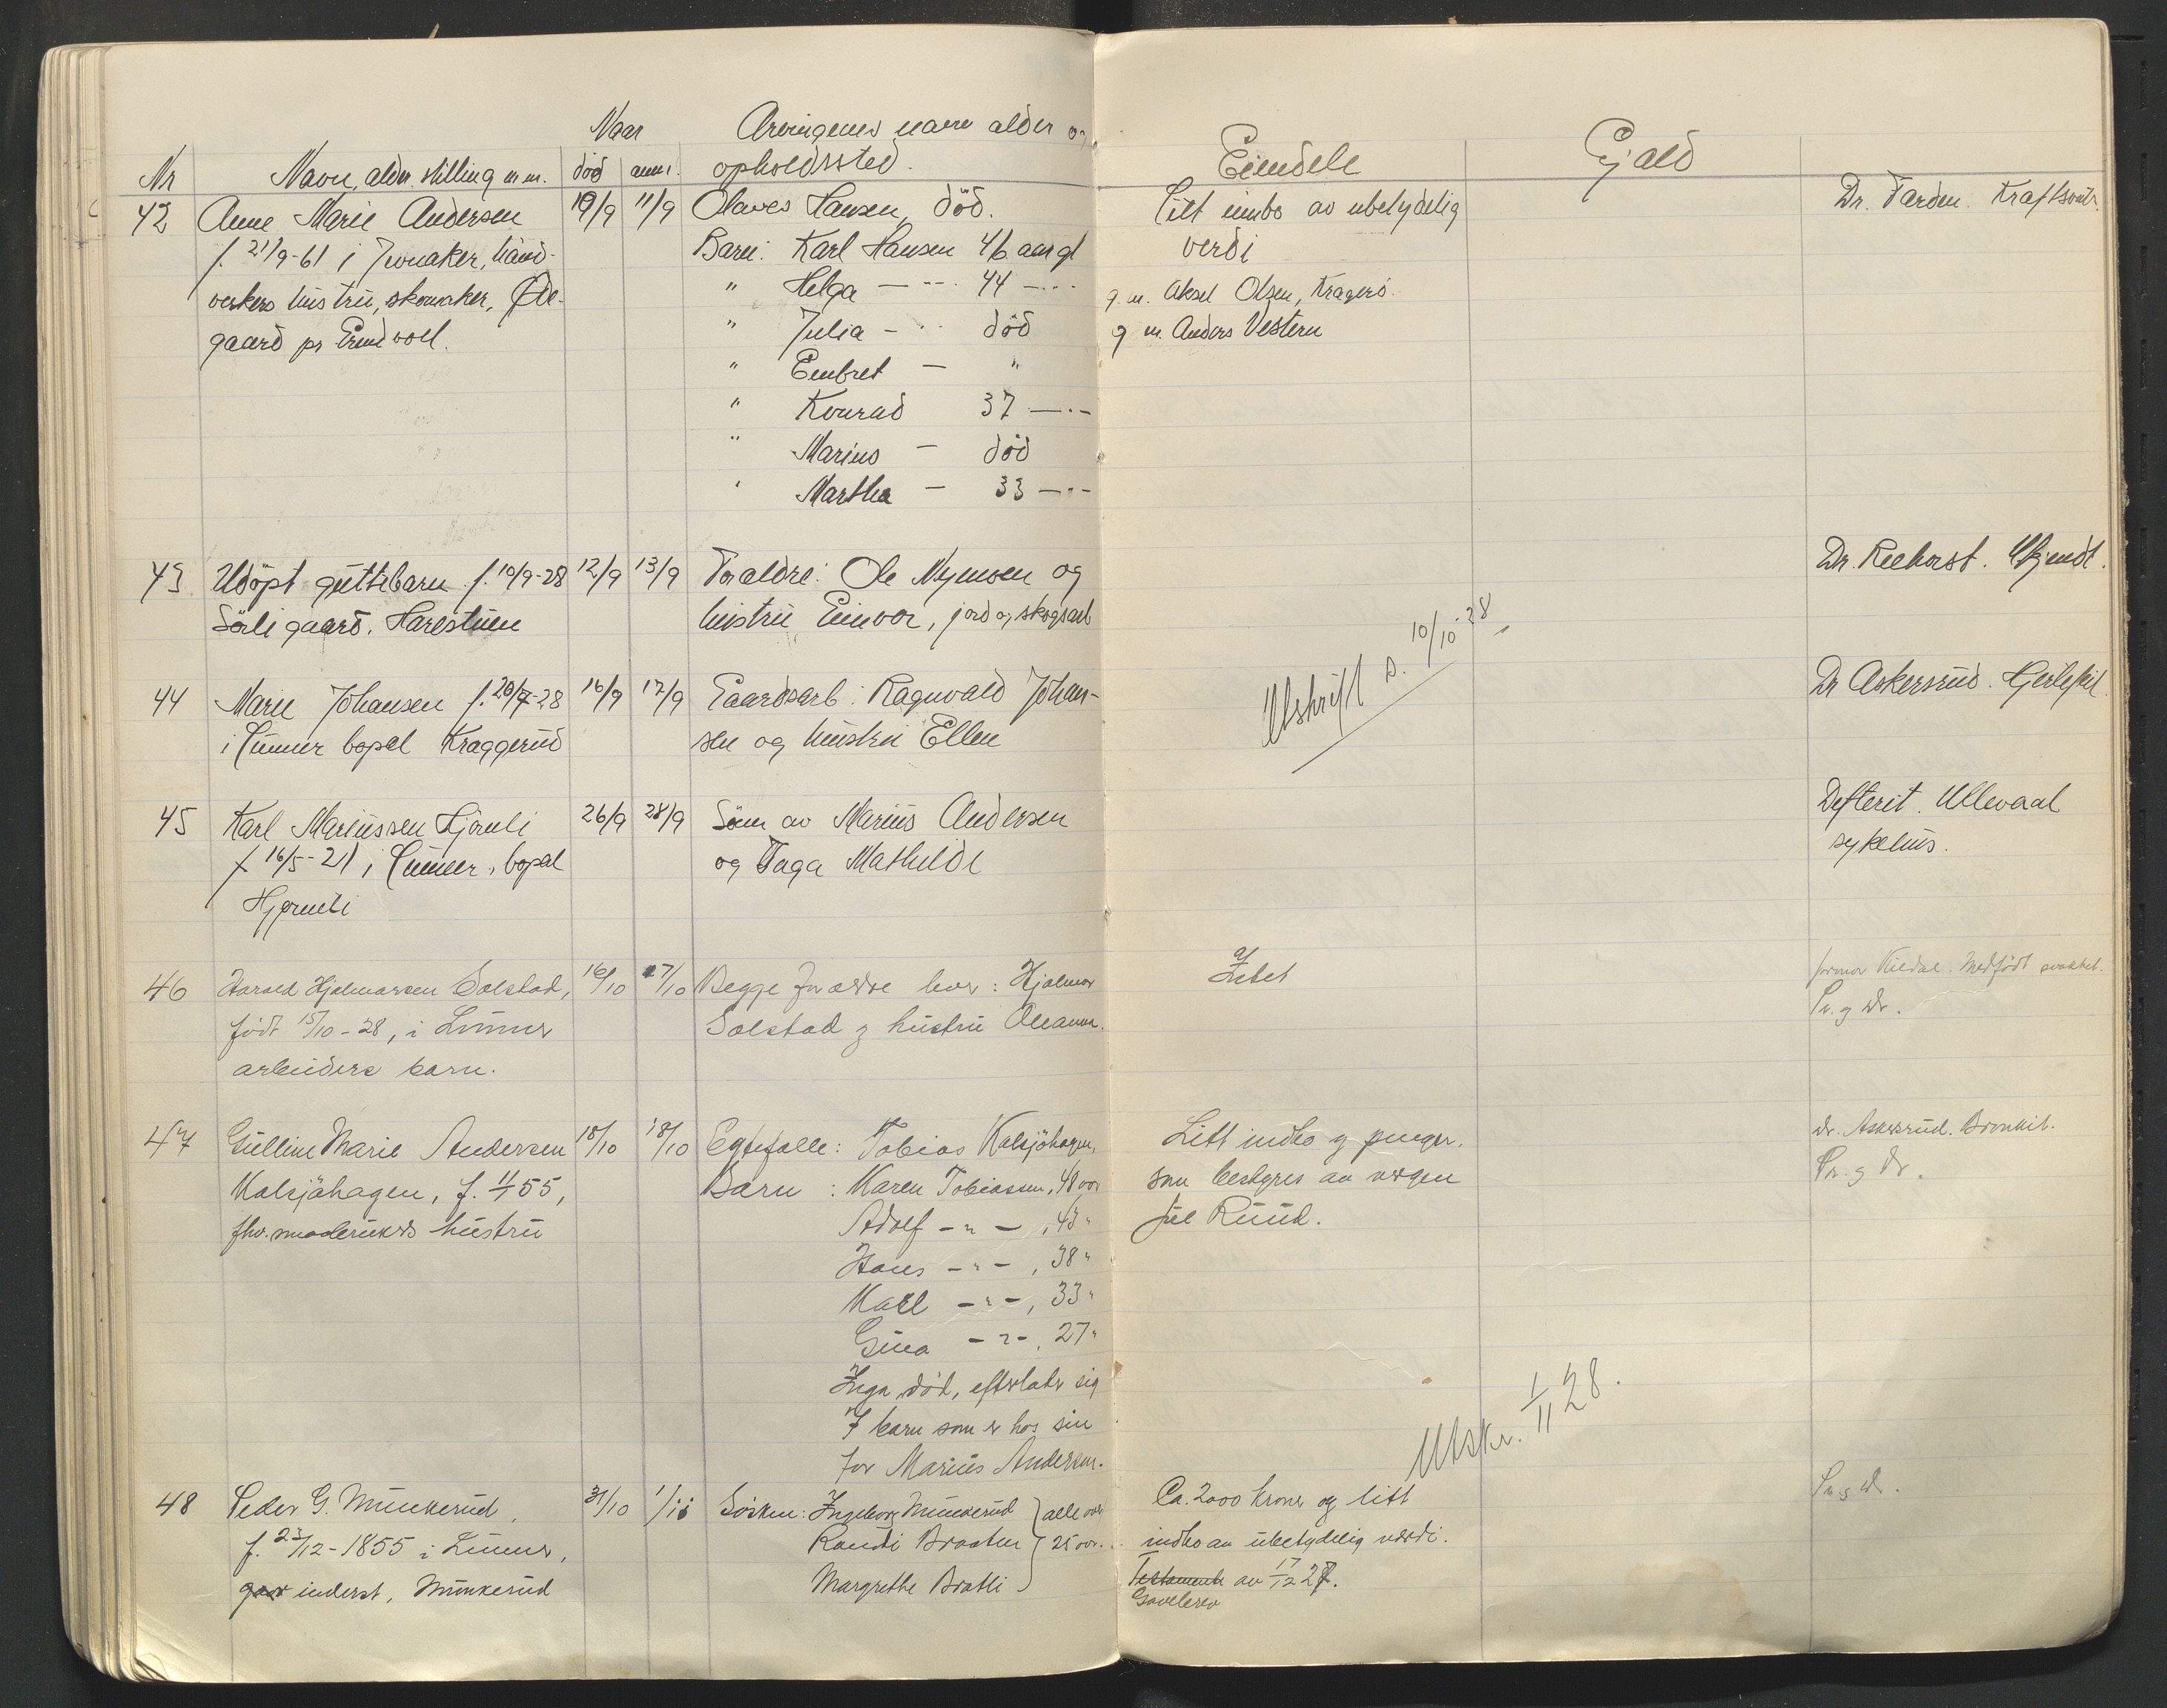 Naar Arvingenes navn alder og
Nr Navn, alder, stilling m.m. død anm. opholdssted. Eiendele Gjæld
42 Anne Marie Andersen 10/9 11/9 Olaves Hansen, død. Litt innbo av ubetydelig Dr. Tarden. Kraftsvulst.
f. 21/9-61 i Jevnaker, hånd- Barn: Karl Hansen 46 aar gl verdi
verkers hustru, skomaker, Øde- " Helga — " — 44 — " — g.m. Aksel Olsen, Kragerø.
gaard pr Grindvoll. " Julia — " død g m. Anders Vestern
" Embret — "
" Konrad 37 — " —
" Marius — død
" Martha — 33 — " —
43 Udöpt guttebarn f. 10/9-28 12/9 13/9 Foraldre: Ole Nymoen og Dr. Reehorst.
Sörli gaard. Harestuen hustru Einvor, jord og skogsarb
Utskrift s. 10/10-28
44 Marie Johansen f. 20/7-28 16/9 17/9 Gaardsarb: Ragnvald Johan- Dr Askersrud. Hjertefeil.
i Lunner bopel Kraggerud sen og hustru Ellen
45 Karl Mariussen Hjørnli 26/9 28/9 Sönn av Marius Andersen Defterit. Ullevaal
f. 16/5-21 i Lunner, bopel og Taga Mathilde sykehus.
Hjørnli
46 Harald Hjalmarsen Solstad, 16/10 17/10 Begge forældre lever: Hjalmar Intet jormor Kildal. Medfødt svakhet.
født 15/10-28, i Lunner Solstad og hustru Oleanna. Pr. og Dr.
arbeiders barn.
47 Gulline Marie Andersen 18/10 18/10 Egtefelle: Tobias Kalsjöhagen, Litt indbo og penger, dr. Askersrud. Bronkit.
Kalsjöhagen, f. 1/1 55, Barn: Karen Tobiassen, 48 aar som bestyres av vergen Pr. og Dr.
fhv. smabrukers hustru Adolf — " —, 43 " Juel Ruud.
Hans — " —, 38 "
Karl — " —, 33 "
Gina — " —, 27 "
Inga død, efterlater sig
7 barn som er hos sin
far Marius Andersen.
Utskr. 1/11 28.
48 Peder G. Munkerud, 31/10 1/11 Søsken: Ingeborg Munkerud } alle over Ca. 2000 kroner og litt Pr. og Dr.
f. 23/12-1855 i Lunner, Randi Braaten } 25 aar. indbo av ubetydelig værdi.
inderst, Munkerud Margrethe Bratli Testamente av 17/12 27.
Gavebrev